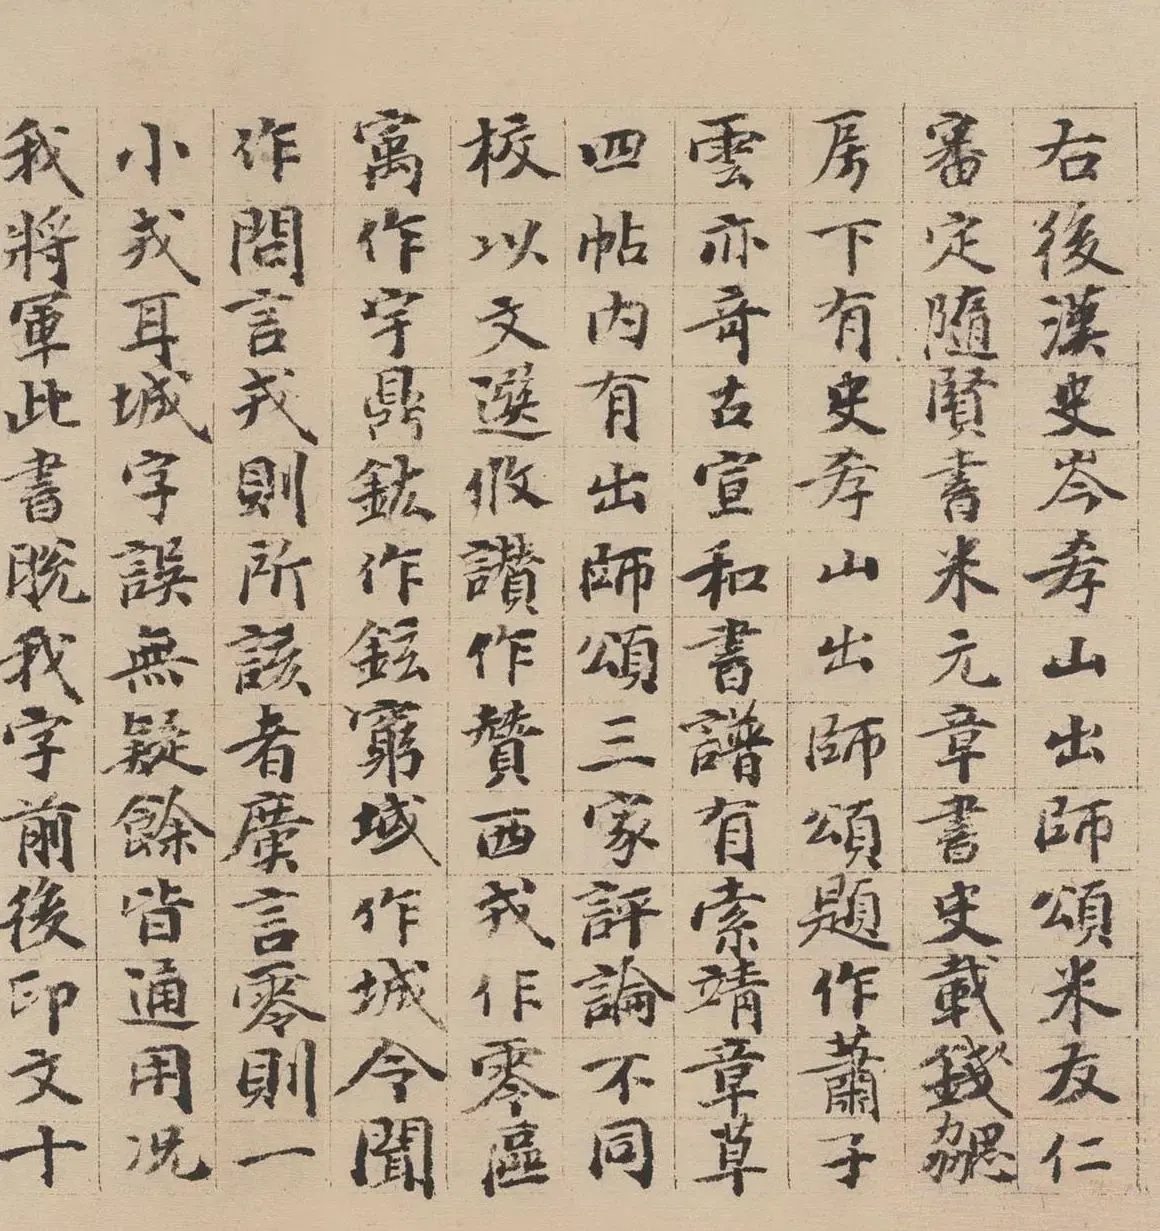 右後漢史岑孝山出師頌米友仁
審定隨賢書米元章書史載錢勰
房下有史孝山出師頌題作蕭子
雲亦奇古宣和書譜有索靖章草
四帖内有出師頌三家評論不同
校以文選攸讚作贊西戎作零區
寓作宇鼎鈜作鉉窮域作城令聞
作問言戎則所該者廣言零則一
小戎耳城字誤無疑餘皆通用况
我將軍此書脱我字前後印文十